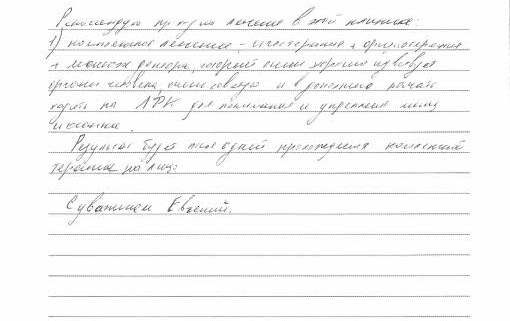 Рекомендую пройти лечение в этой клинике:
1) комплексное лечение - иглотерапия + физиотерапия
+ массаж доктора, который очень хорошо чувствует
органы человека, очень советую и в дополнение начать
ходить на ЛФК для понимания и укрепления мышц
Результат будет после одной прохождения комплексной
терапии на лицо
С уважением Евгений.